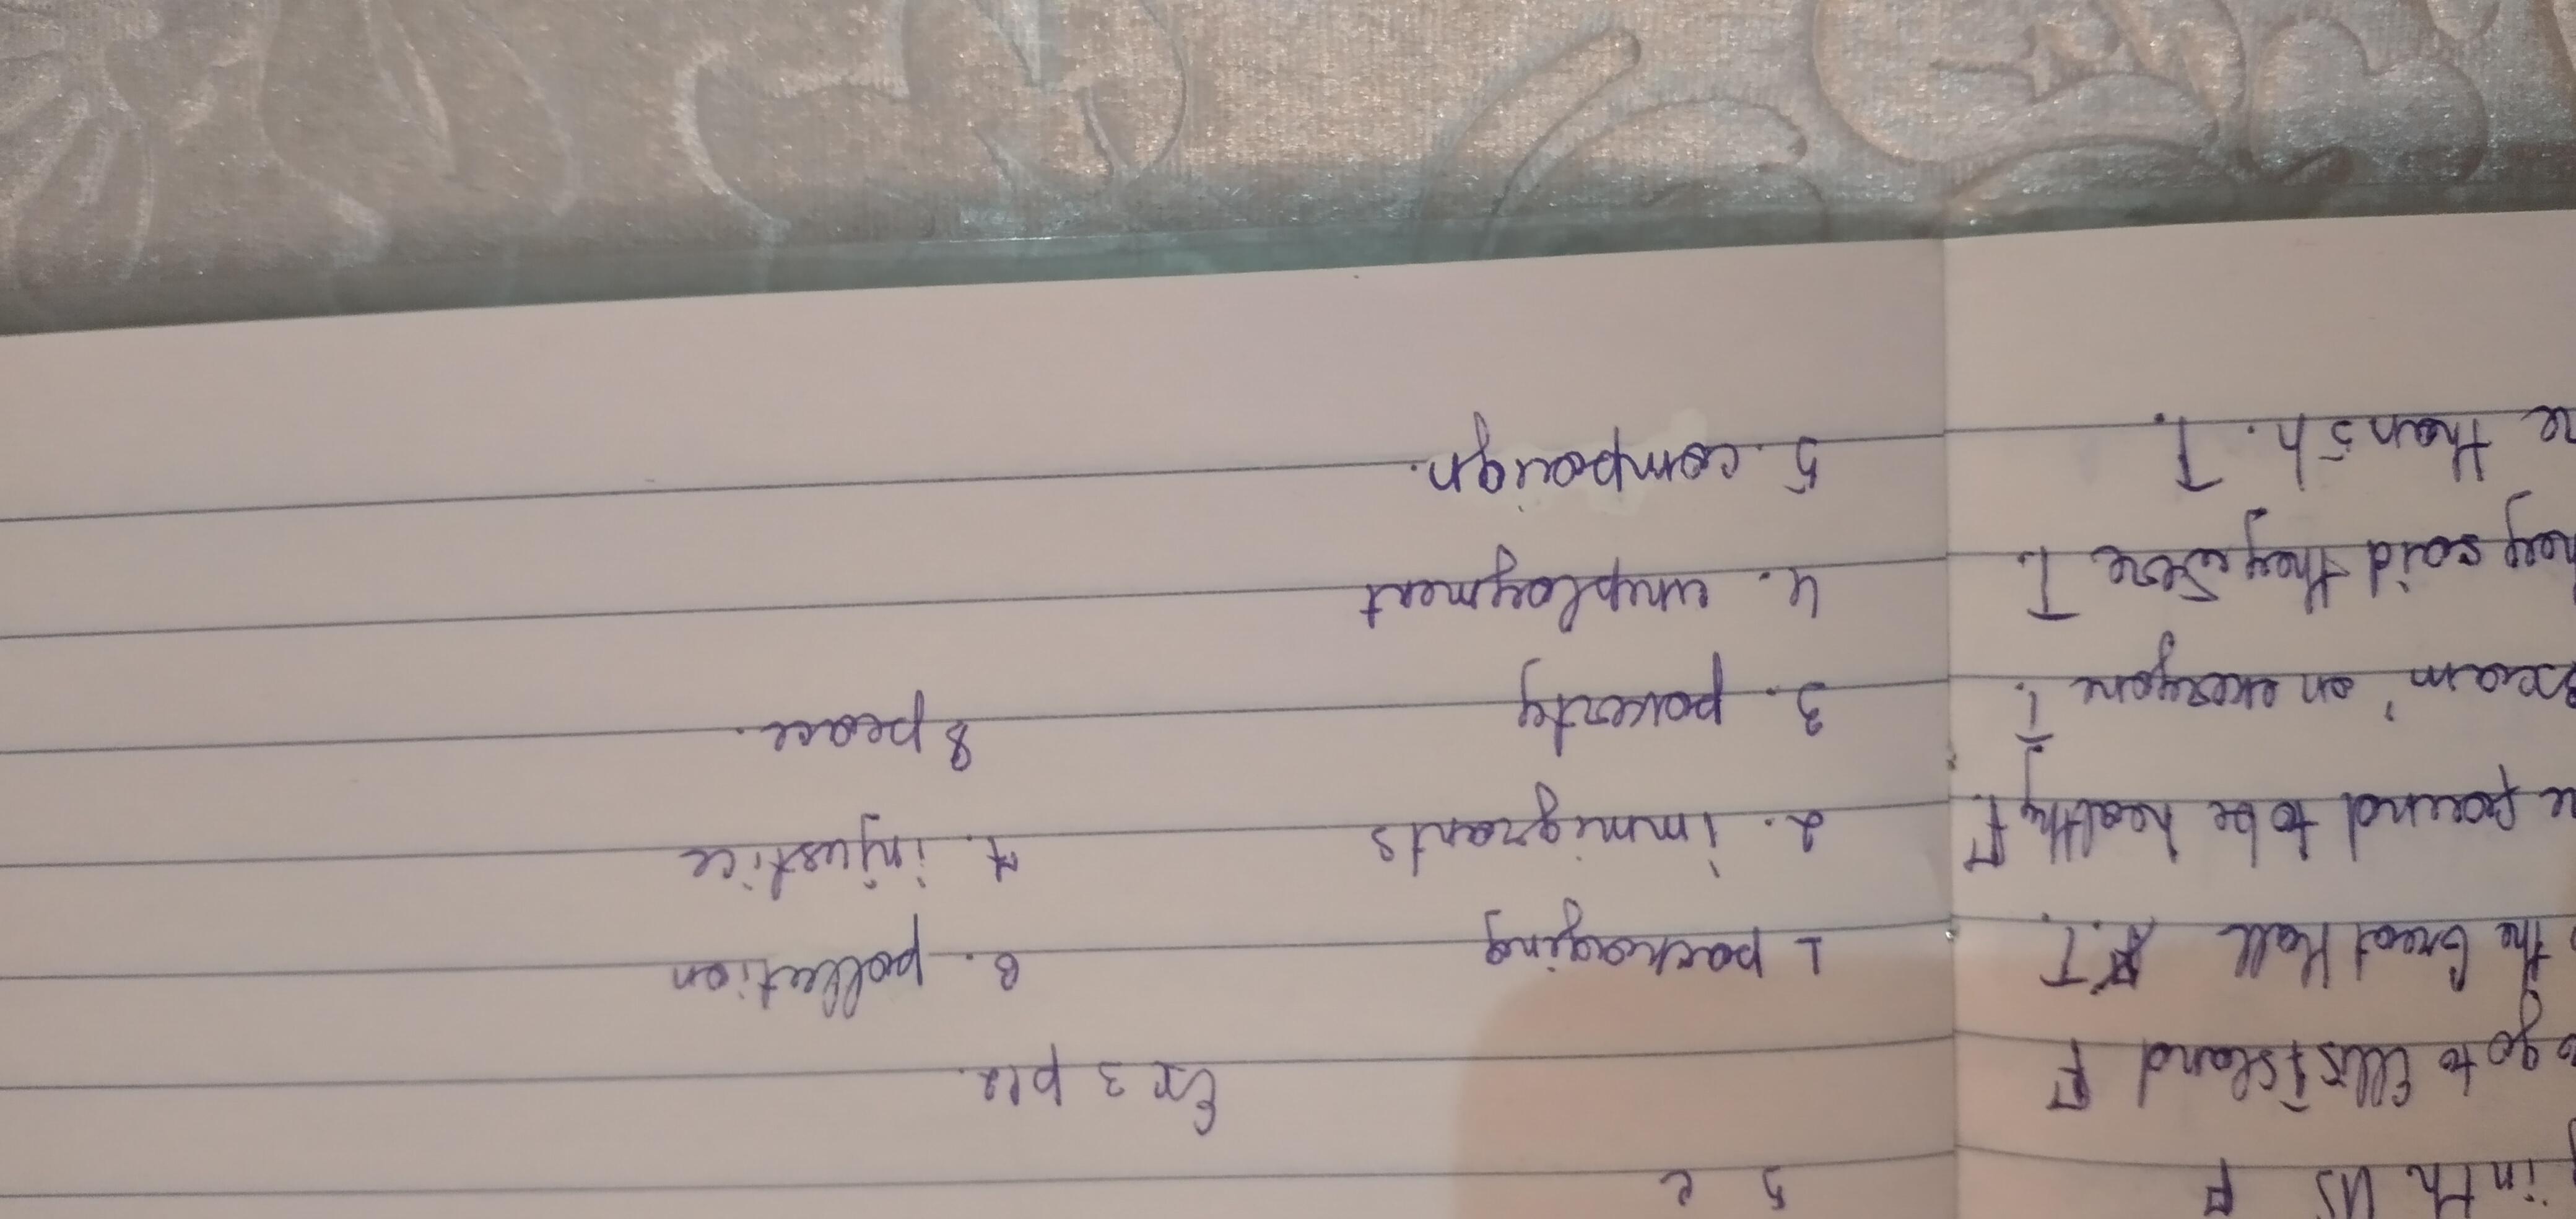 in th US F
go to Ellis Island F
the Great Hall T.
found to be healthy F.
on everyone T.
said they were T.
than 5 h. T.
5 c
Ex 3 p12.
1 packaging
2. immigrants
3. poverty
4. umployment
5. compaign.
6. pollution
7. injustice
8 peace.